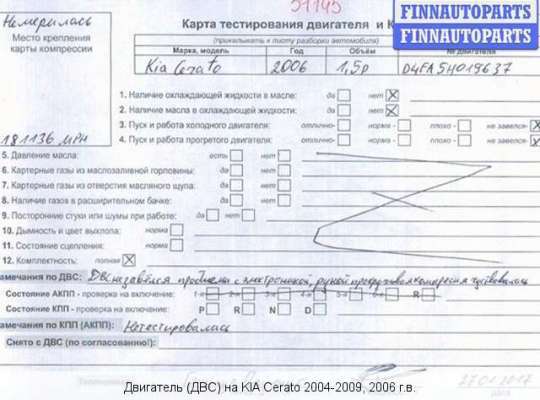 51145
Немерилась
Место крепления
карты компрессии
181136 MPH
Карта тестирования двигателя и К
FINNAUTOPARTS
FINNAUTOPARTS
(прикалывать к листу разборки автомобиля)
Марка, модель Год Объём № двигателя
Kia Cerato 2006 1,5D D4FA5H019637
1. Наличие охлаждающей жидкости в масле: да нет
2. Наличие масла в охлаждающей жидкости: да нет
3. Пуск и работа холодного двигателя: отлично- норма - плохо - не завелся-
4. Пуск и работа прогретого двигателя: отлично- норма - плохо - не завелся-
5. Давление масла: есть нет
6. Картерные газы из маслозаливной горловины: да нет
7. Картерные газы из отверстия масляного щупа: да нет
8. Наличие газов в расширительном бачке: да нет
9. Посторонние стуки или шумы при работе: да нет
10. Дымность и цвет выхлопа: норма
11. Состояние сцепления: норма
12. Комплектность: полная
амечания по ДВС: ДВС незавёлся проблемы с электроникой, рукой прокручивал компресия чувствовалась
Состояние АКПП - проверка на включение: 1-я 2-я 3-я 4-я 5-я 6-я R-я
Состояние КПП - проверка на включение: P R N D
амечания по КПП (АКПП): Нетестировалась
Снято с ДВС (по согласованию!):
27.01.2017
Двигатель (ДВС) на KIA Cerato 2004-2009, 2006 г.в.